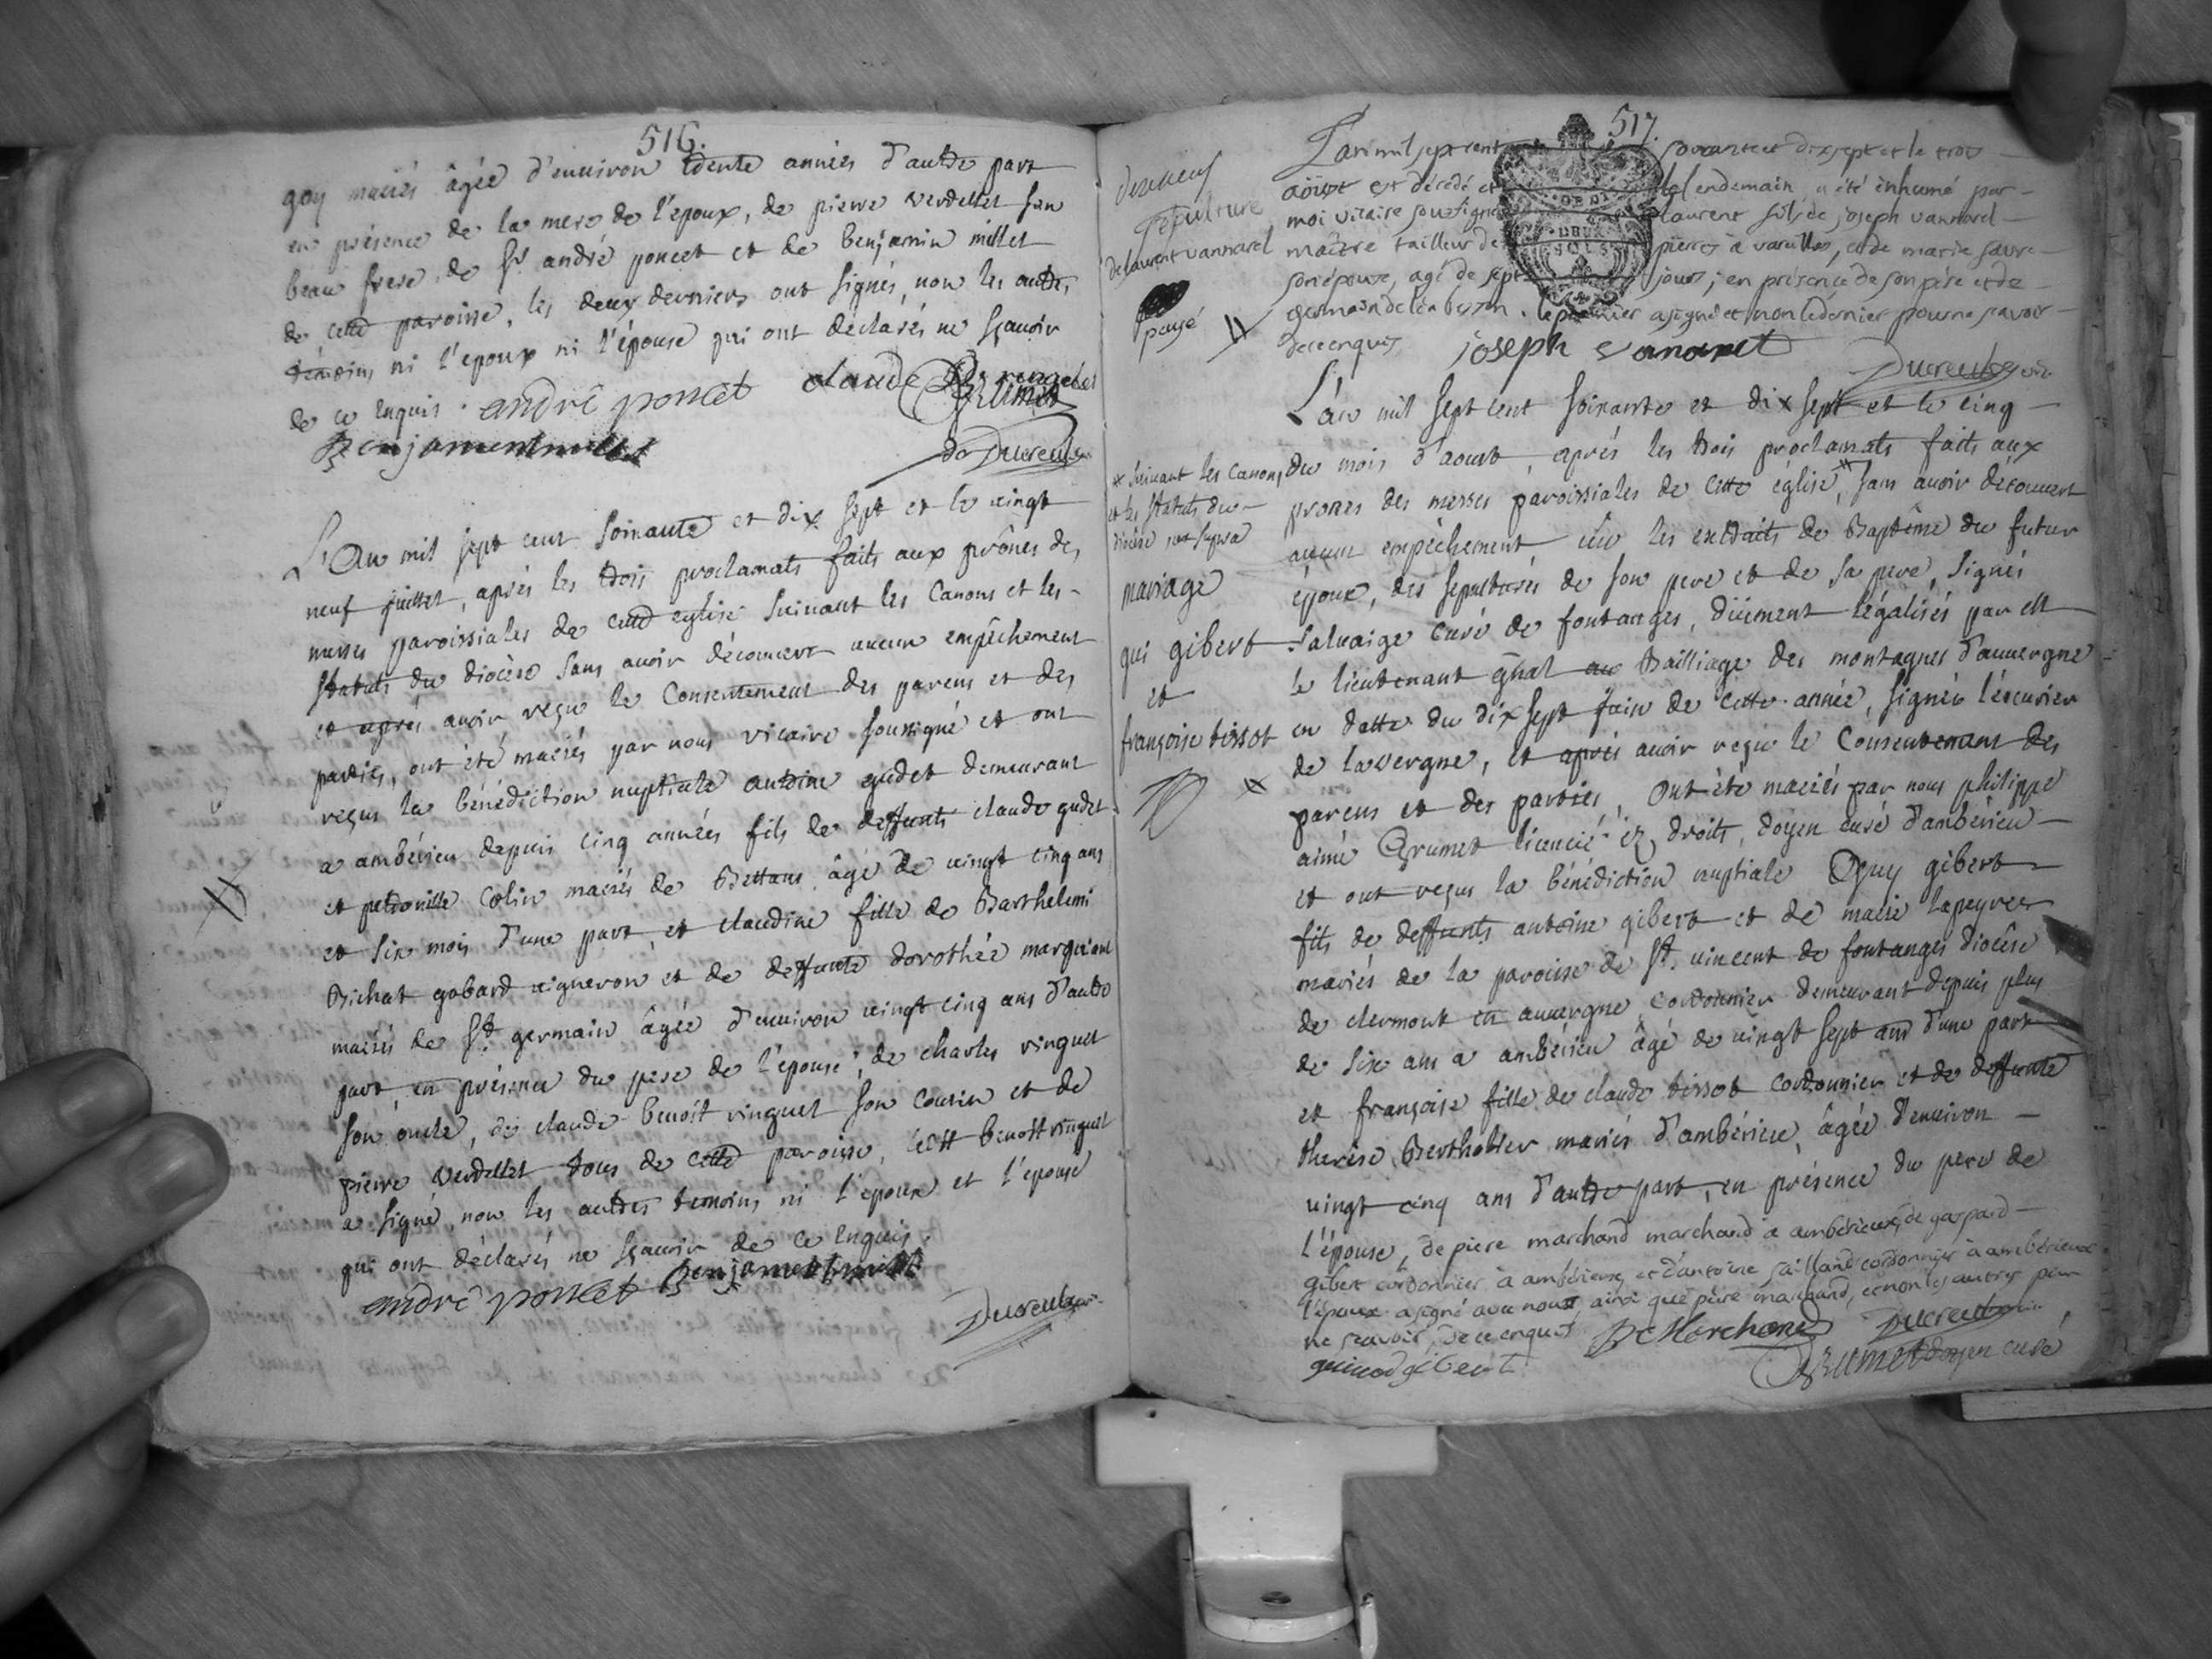 516.
goy mariés âgée d'environ trente années d'autre part
en présence de la mere de l'epoux, de pierre verdellet son
beau frere de Sr andré poncet et de benjamin millet
de cette paroisse, les deux derniers ont signés, non les autres
témoins ni l'epoux ni l'épouse qui ont déclarés ne sçavoir
de ce enquis. andré poncet claude
Ducreux
L'an mil sept cent soixante et dix sept et le vingt
neuf juillet, aprés les trois proclamats faits aux prônes des
messes paroissiales de cette eglise suivant les Canons et les
statuts du diocèse sans avoir découvert aucun empêchement
et aprés avoir reçu le Consentement des parens et des
parties, ont été mariés par nous vicaire soussigné et ont
reçus la bénédiction nuptiale antoine gudet demeurant
a ambérieu depuis cinq années fils de deffunts claude gudet
et petronille Colin mariés de Bettans âgé de vingt cinq ans
et six mois d'une part, et claudine fille de Barthelemi
Bichat gobard vigneron et de deffunte dorothée
mariés de St germain âgée d'environ vingt cinq ans d'autre
part, en présence du pere de l'épouse, de charles vinguet
son oncle, de claude benoit vinguet son Cousin et de
pierre verdellet tous de cette paroisse, benoit vinguet
a signé, non les autres temoins ni l'epoux et l'epouse
qui ont déclarés ne sçavoir de ce enquis.
andré poncet
Ducreux
517.
L'an mil sept cent soixante et dix sept et le trois
août est décédé et le lendemain a été inhumé par
moi vicaire soussigné laurent fils de joseph vannarel
maître tailleur de pierres à vareilles, et de marie favre
son épouse, agé de sept jours; en présence de son pére et de
le premier a signé et non le dernier pour ne savoir
de ce enquis joseph vanarel
Ducreux vic.
sepulture
de laurent vannarel
payé
L'an mil sept cent soixante et dix sept et le cinq
du mois d'aoust, aprés les trois proclamats faits aux
prones des messes paroissiales de cette église,* sans avoir découvert
aucun empêchement, vu les extraits de Baptême du futur
époux, des sepultures de son pere et de sa mere, signés
Salvaige curé de fontanges, düement légalisés par Mr
le lieutenant gñal au Bailliage des montagnes d'auvergne
en datte du dix sept juin de cette année, signés lescurier
de lavergne, et aprés avoir reçu le Consentement des
parens et des parties, Ont été mariés par nous philippe
aimé Grumet licencié ez droits, doyen curé d'ambérieu
et ont reçus la bénédiction nuptiale Guy gibert
fils de deffunts antoine gibert et de marie lapeyre
mariés de la paroisse de St. vincent de fontanges diocêse
de clermont en auvergne, cordonnier demeurant depuis plus
de six ans a ambérieu âgé de vingt sept ans d'une part
et françoise fille de claude tissot cordonnier et de deffunte
therese Bertholier mariés d'ambérieu, âgée d'environ
vingt cinq ans d'autre part, en présence du pere de
l'épouse, de piere marchand marchand à ambérieux, de gaspard
gibert cordonnier à ambérieux, et d'antoine saillard cordonnier à ambérieux
l'époux a signé avec nous, ainsi que piere marchand, et non les autres pour
ne scavoir, de ce enquis P Marchand Ducreux vic.
gibert Grumet doyen curé
* suivant les Canons
et les statuts du
diocèse
mariage
gui gibert
et
françoise tissot